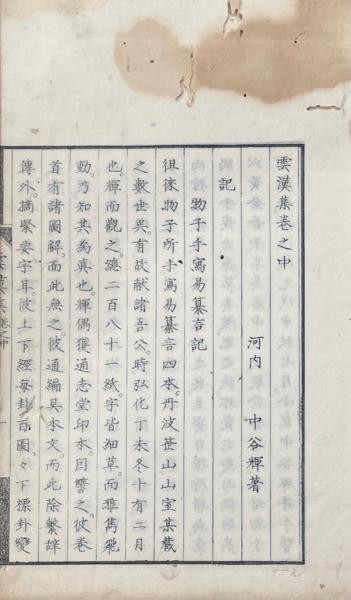 雲漢集卷之中
河内 中谷褌著
記
物子手寫易纂言記
徂徠物子所手寫易纂言四本。丹波笹山山室某藏
之數世矣有故獻諸吾公。時弘化丁未冬十有二月
也。褌而觀之。總二百八十一紙。字皆細草。而雅雋飛
動。乃知其為真也。褌偶獲通志堂印本。因讐之。彼卷
首有諸圖解。而此無之。彼通編具本文。而此除繫辭
傳外。摘緊要字耳。彼上下經每卦百圖。々下標卦變